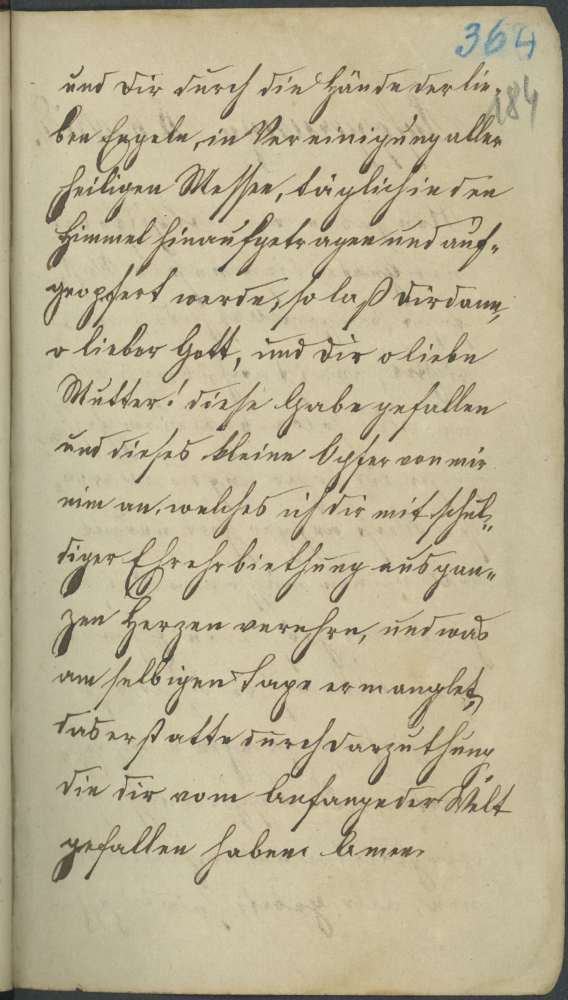 364
184
und dir durch die Hände der lie-
ben Engeln, in Vereinigung aller
heiligen Messen, täglich in den
Himmel hinaufgetragen und auf-
geopfert werde, so laß dir dann,
o lieber Gott, und dir o liebe
Mutter! diese Gabe gefallen
und dieses kleine Opfer von mir
nim an, welches ich dir mit schul-
diger Ehrehrbiethung aus gan-
zen Herzen verehre, und was
am selbigen Tage ermanglet,
das erstatte durch darzuthung
die dir vom Anfange der Welt
gefallen haben. Amen.